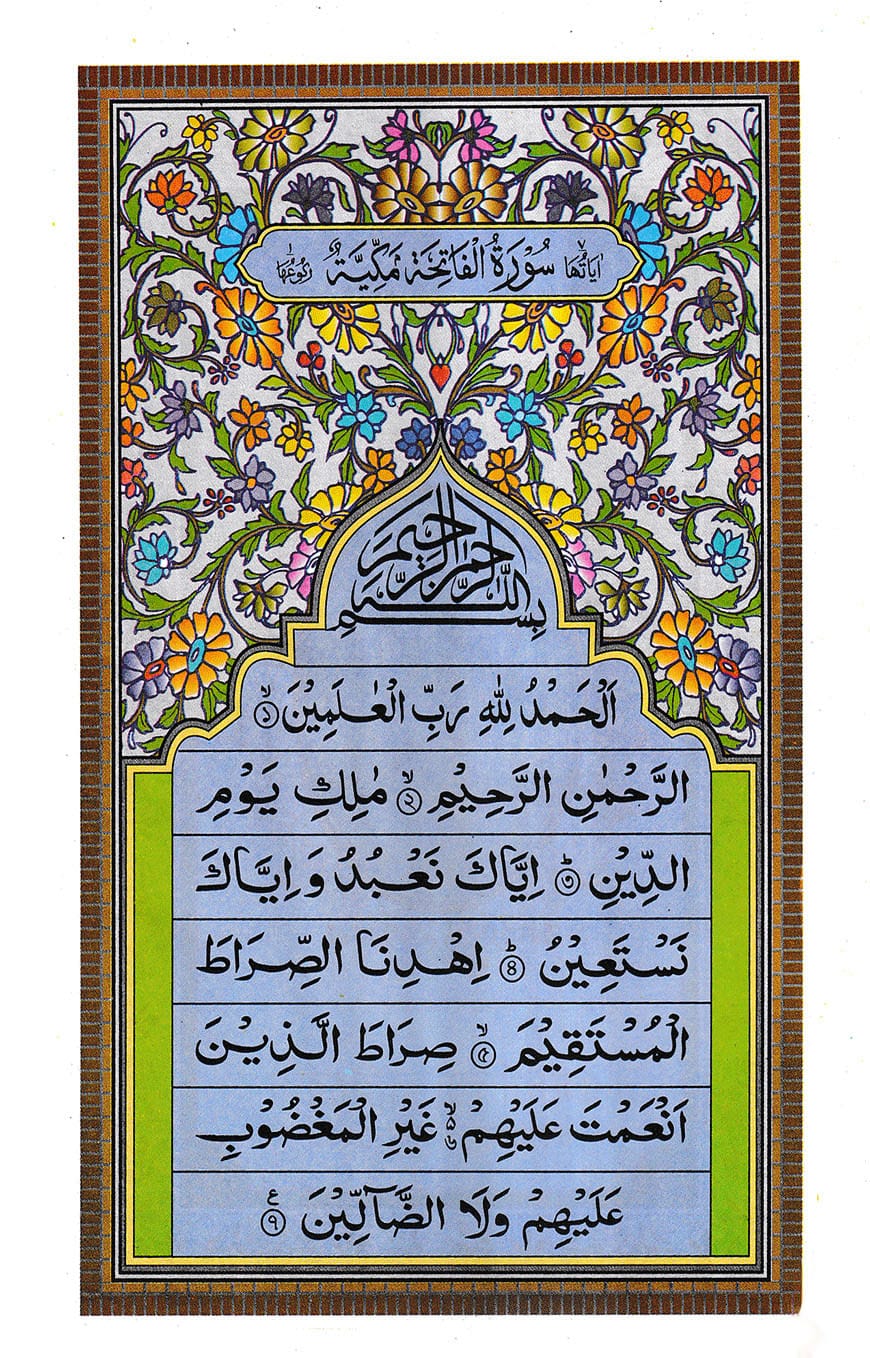 اٰيَاتُهَا ٧ سُوْرَةُ الْفَاتِحَةِ مَكِّيَّةٌ رُكُوْعُهَا ١
بِسْمِ اللّٰهِ الرَّحْمٰنِ الرَّحِيْمِ
اَلْحَمْدُ لِلّٰهِ رَبِّ الْعٰلَمِيْنَ ۙ﴿۱﴾
الرَّحْمٰنِ الرَّحِيْمِ ۙ﴿۲﴾ مٰلِكِ يَوْمِ
الدِّيْنِ ؕ﴿۳﴾ اِيَّاكَ نَعْبُدُ وَ اِيَّاكَ
نَسْتَعِيْنُ ؕ﴿۴﴾ اِهْدِنَا الصِّرَاطَ
الْمُسْتَقِيْمَ ۙ﴿۵﴾ صِرَاطَ الَّذِيْنَ
اَنْعَمْتَ عَلَيْهِمْ ۙ۵ غَيْرِ الْمَغْضُوْبِ
عَلَيْهِمْ وَلَا الضَّآلِّيْنَ ﴿۹﴾ ع